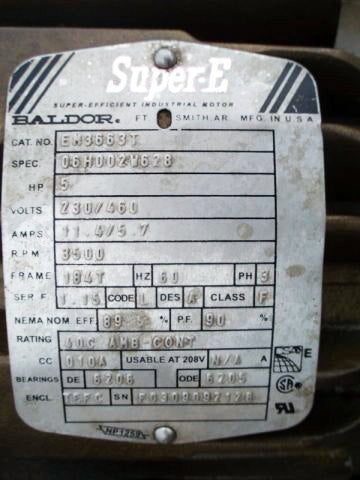 Super-E
SUPER-EFFICIENT INDUSTRIAL MOTOR
BALDOR. FT. SMITH AR. MFG. IN U.S.A.
CAT. NO. EM3663T
SPEC. 06H002W628
HP 5
VOLTS 230/460
AMPS 11.4/5.7
RPM 3500
FRAME 184T HZ 60 PH 3
SER. F. 1.15 CODE L DES A CLASS F
NEMA NOM. EFF. 89.5 % P.F. 90 %
RATING 40C AMB-CONT
CC 010A USABLE AT 208V N/A A
BEARINGS DE 6206 ODE 6205
ENCL. TEFC SN
NP1259
E
SA